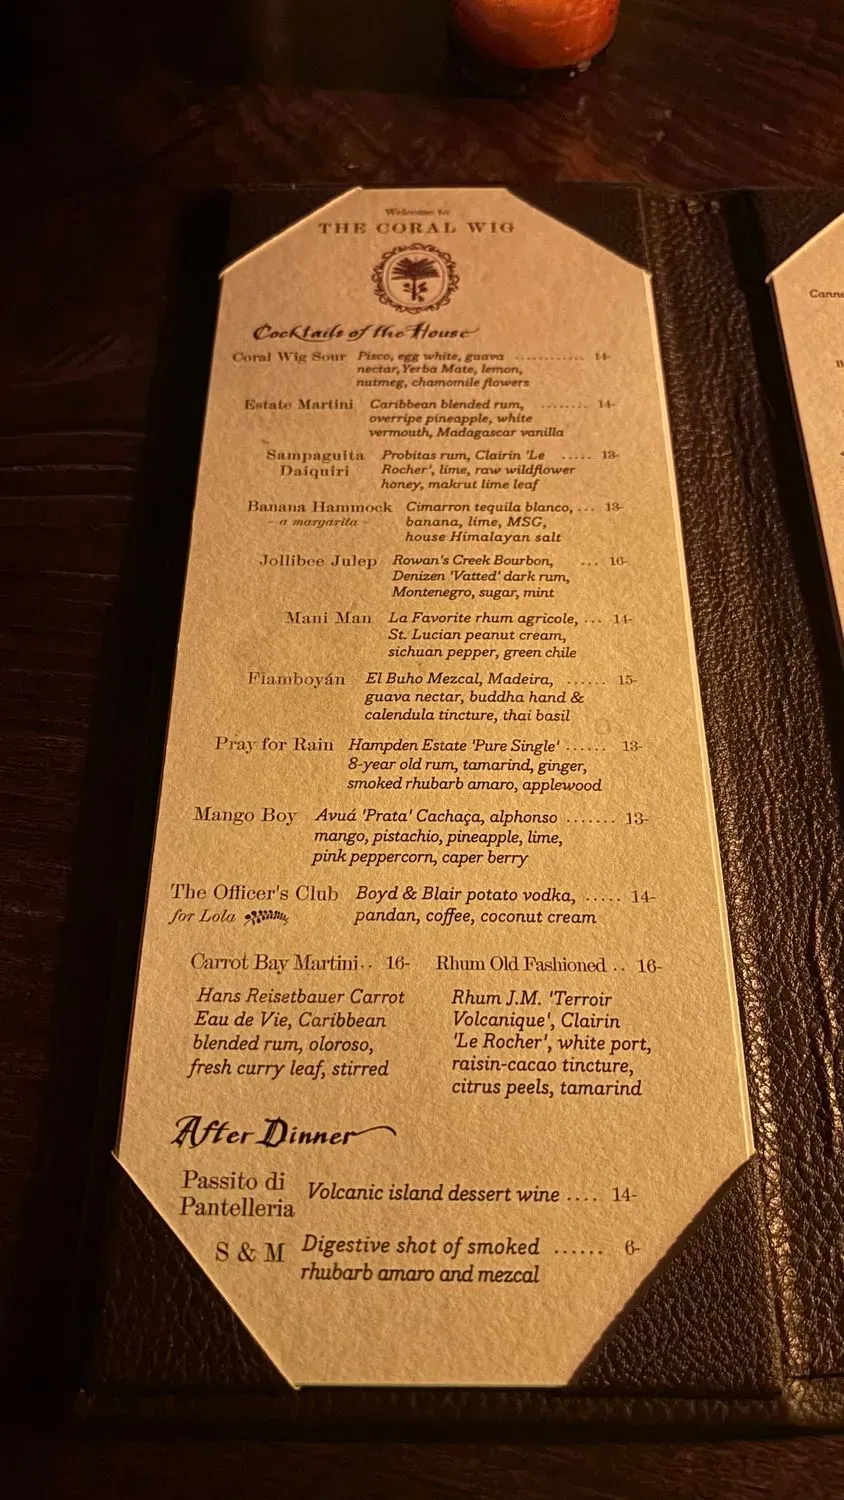 Welcome to
THE CORAL WIG
Cocktails of the House
Coral Wig Sour Pisco, egg white, guava ........... 14-
nectar, Yerba Mate, lemon,
nutmeg, chamomile flowers
Estate Martini Caribbean blended rum, ........ 14-
overripe pineapple, white
vermouth, Madagascar vanilla
Sampaguita Probitas rum, Clairin 'Le ..... 13-
Daiquiri Rocher', lime, raw wildflower
honey, makrut lime leaf
Banana Hammock Cimarron tequila blanco, ... 13-
- a margarita - banana, lime, MSG,
house Himalayan salt
Jollibee Julep Rowan's Creek Bourbon, ... 16-
Denizen 'Vatted' dark rum,
Montenegro, sugar, mint
Mani Man La Favorite rhum agricole, ... 14-
St. Lucian peanut cream,
sichuan pepper, green chile
Flamboyán El Buho Mezcal, Madeira, ...... 15-
guava nectar, buddha hand &
calendula tincture, thai basil
Pray for Rain Hampden Estate 'Pure Single' ...... 13-
8-year old rum, tamarind, ginger,
smoked rhubarb amaro, applewood
Mango Boy Avuá 'Prata' Cachaça, alphonso ....... 13-
mango, pistachio, pineapple, lime,
pink peppercorn, caper berry
The Officer's Club Boyd & Blair potato vodka, ..... 14-
for Lola pandan, coffee, coconut cream
Carrot Bay Martini.. 16-
Hans Reisetbauer Carrot
Eau de Vie, Caribbean
blended rum, oloroso,
fresh curry leaf, stirred
Rhum Old Fashioned .. 16-
Rhum J.M. 'Terroir
Volcanique', Clairin
'Le Rocher', white port,
raisin-cacao tincture,
citrus peels, tamarind
After Dinner
Passito di
Pantelleria Volcanic island dessert wine .... 14-
S & M Digestive shot of smoked ...... 6-
rhubarb amaro and mezcal